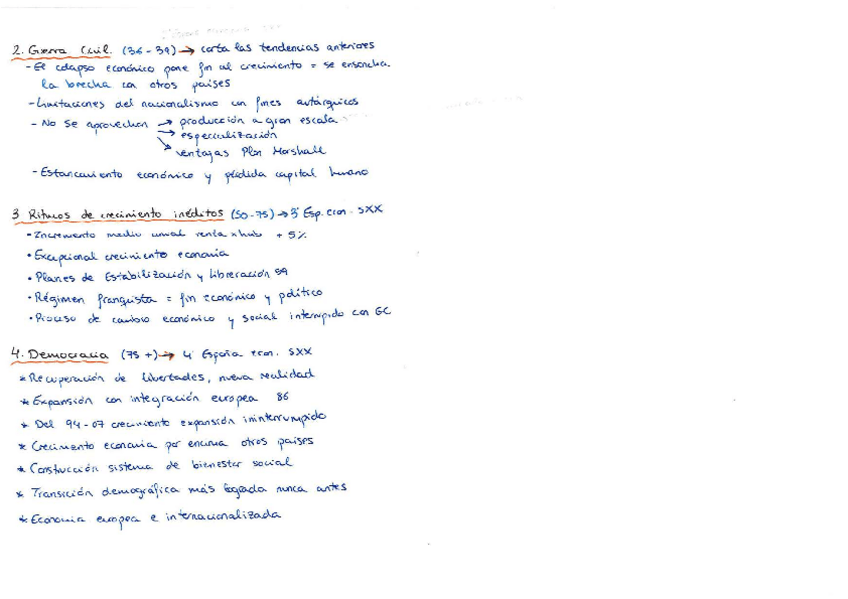 2. Guerra Civil. (36-39) → corta las tendencias anteriores
- El colapso económico pone fin al crecimiento = se ensancha
la brecha con otros países
- Limitaciones del nacionalismo con fines autárquicos
- No se aprovechan → producción a gran escala
→ especialización
→ ventajas Plan Marshall
- Estancamiento económico y pérdida capital humano
3 Ritmos de crecimiento inéditos (50-75) → 3ª Esp. econ. SXX
- Incremento medio anual renta x hab + 5%
• Excepcional crecimiento economía
• Planes de Estabilización y Liberación 59
• Régimen franquista = fin económico y político
• Proceso de cambio económico y social interrumpido con GC
4. Democracia (75 +) → 4ª España econ. SXX
* Recuperación de libertades, nueva realidad
* Expansión con integración europea 86
* Del 94-07 crecimiento expansión ininterrumpido
* Crecimiento economía por encima otros países
* Construcción sistema de bienestar social
* Transición demográfica más lograda nunca antes
* Economía europea e internacionalizada